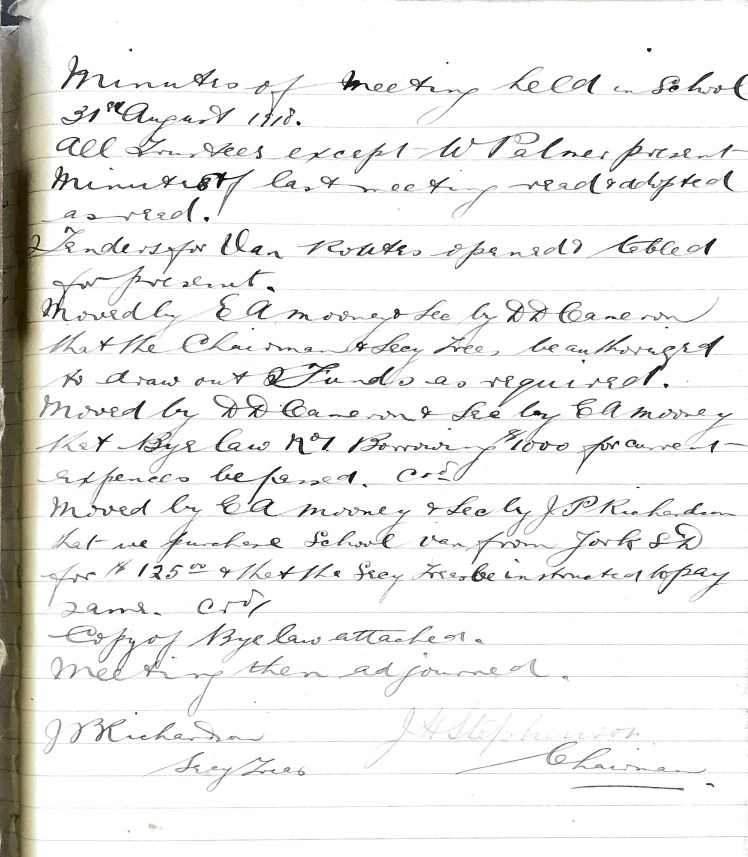 Minutes of meeting held in School
31st August 1918.
All Trustees except W Palmer present
Minutes of last meeting read & adopted
as read.
Tenders for Van Routes opened & tabled
for present.
Moved by E A Mooney & Sec by D D Cameron
that the Chairman & Secy Treas, be authorized
to draw out Funds as required.
Moved by D D Cameron & Sec by E A Mooney
that Bye law No 1 Borrowing $1000 for current
expences be passed. Crd
Moved by E A Mooney & Sec by J P Richardson
that we purchase School van from York S D
for $125.00 & that the Secy Treas be instructed to pay
same. Crd
Copy of Bye law attached.
Meeting then adjourned.
J P Richardson J H Stephenson
Secy Treas Chairman.